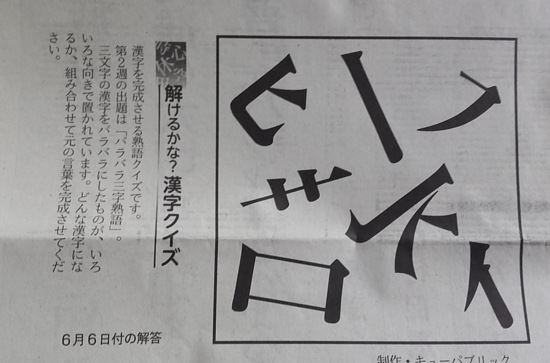 解けるかな?漢字クイズ
漢字を完成させる熟語クイズです。
第2週の出題は「バラバラ三字熟語」。
三文字の漢字をバラバラにしたものが、いろ
いろな向きで置かれています。どんな漢字にな
るか、組み合わせて元の言葉を完成させてくだ
さい。
6月6日付の解答
制作・キューパブリック